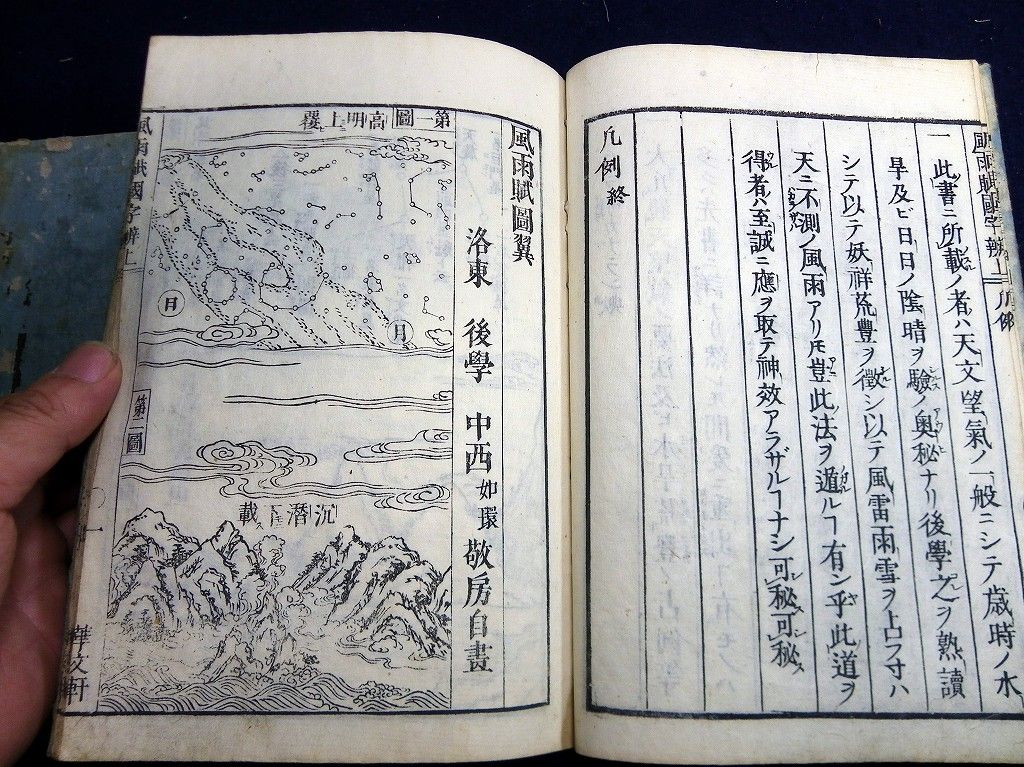 風雨賦國字辨上 凡例
一 此書ニ所載ノ者ハ天文望氣ノ一般ニシテ歳時ノ水
旱及ビ日日ノ陰晴ヲ驗ノ奥秘ナリ後學之ヲ熟讀
シテ以テ妖祥荒豊ヲ徴シ以テ風雷雨雪ヲ卜フ寸ハ
天ニ不測ノ風雨アリ𪜈豈此法ヲ遁ルヿ有シ乎此道ヲ
得者ハ至誠ニ應ヲ取テ神效アラザルヿナシ可秘可秘
凡例終
風雨賦圖翼
洛東 後學 中西如環敬房自畫
第一圖 高明上覆
日
月
第二圖
沉潛下載
風雨賦國字辨上
一
華文軒